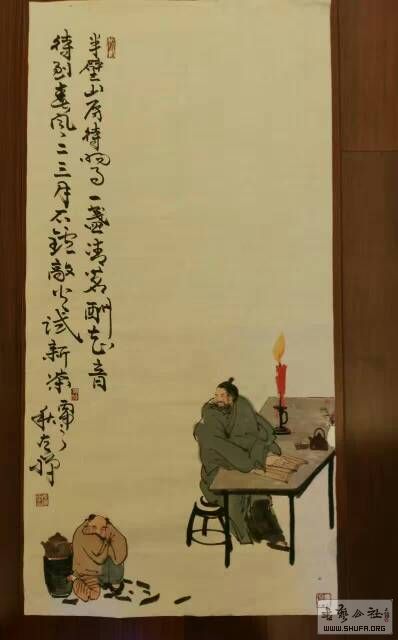 半壁山房待明月一盏清茗酬知音
待到春风二三月石鑪敲火试新茶
书艺公社
WWW.SHUFA.ORG